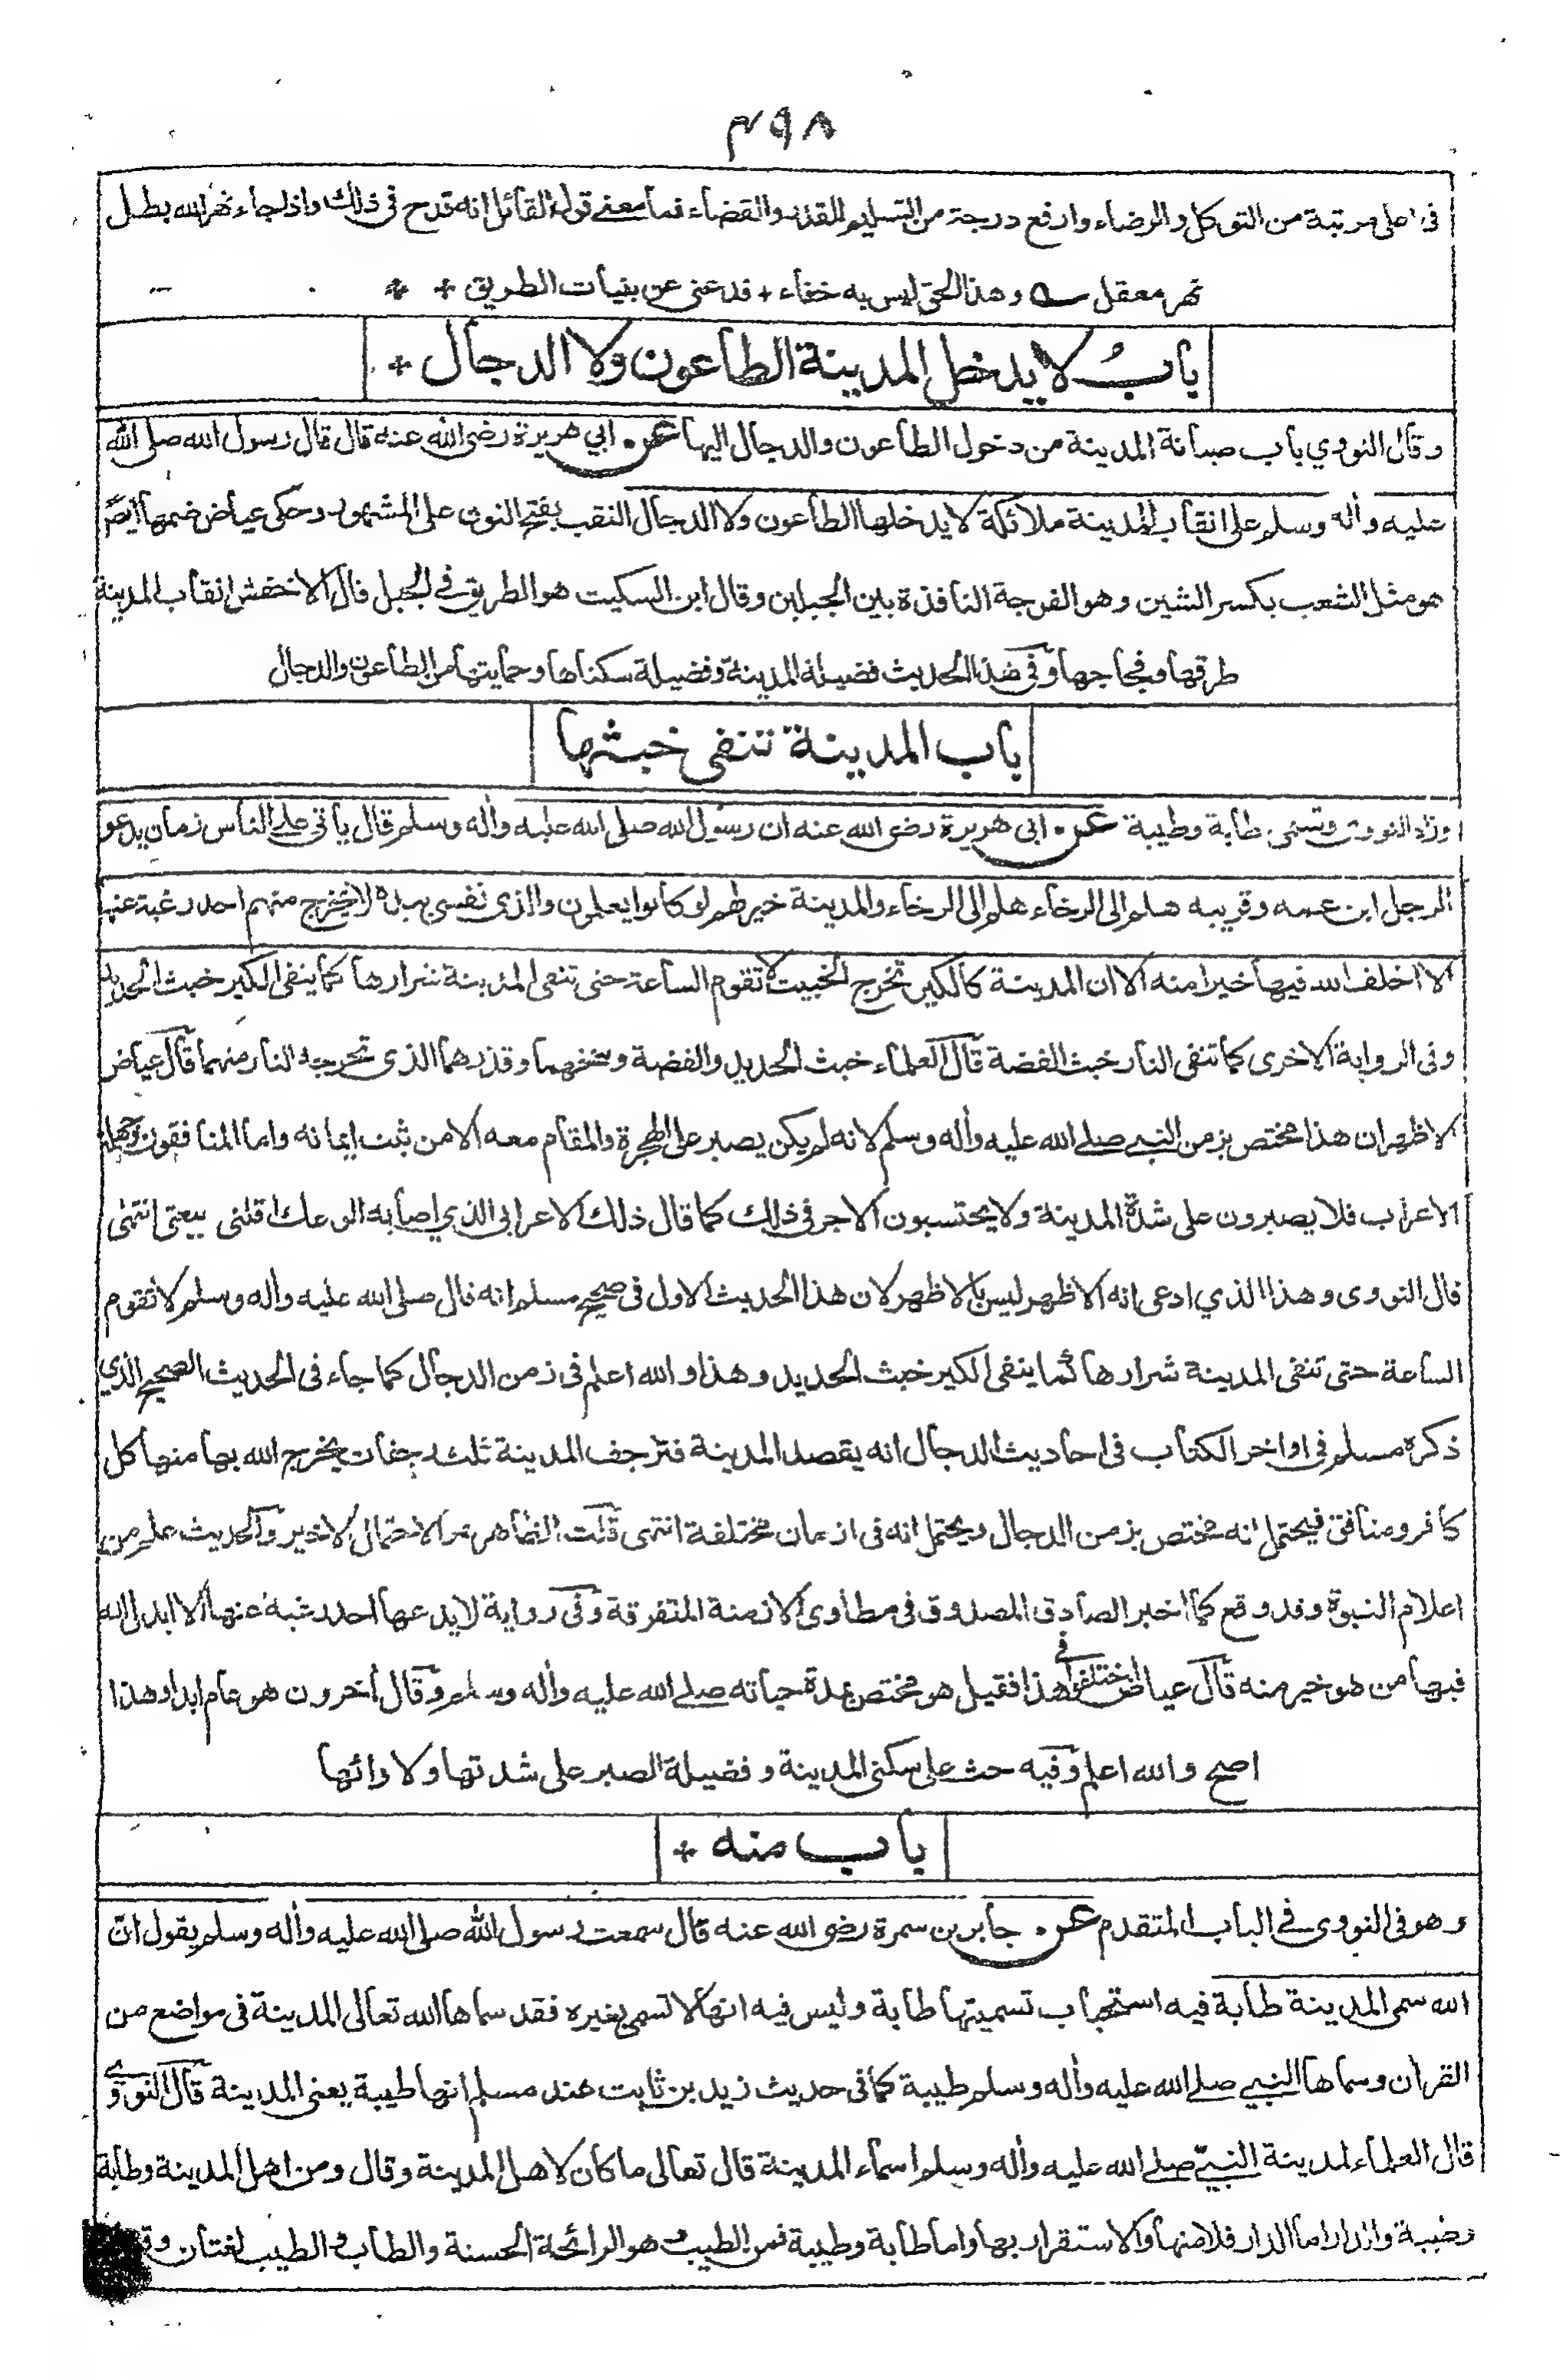 ٤٩٨
في اعلى مرتبة من التوكل والرضاء وارفع درجة من التسليم للقدر والقضاء فما معنى قول القائل انه قدح في ذلك واذا جاء نهر الله بطل
نهر معقل ۔۔ وهذا الحق ليس به خفاء + فدعني عن بنيات الطريق + +
باب لا يدخل المدينة الطاعون ولا الدجال +
وقال النووي باب صيانة المدينة من دخول الطاعون والدجال اليها عن ابي هريرة رضي الله عنه قال قال رسول الله صلى الله
عليه وأله وسلم على انقاب المدينة ملائكة لا يدخلها الطاعون ولا الدجال النقب بفتح النون على المشهور وحكى عياض ضمها ايضا
هو مثل الشعب بكسر الشين وهو الفرجة النافذة بين الجبلين وقال ابن السكيت هو الطريق في الجبل قال الاخفش انقاب المدينة
طرقها وفجاجها وفي هذا الحديث فضيلة المدينة وفضيلة سكناها وحمايتها من الطاعون والدجال
باب المدينة تنفى خبثها
وزاد النووي وتسمى طابة وطيبة عن ابي هريرة رضي الله عنه ان رسول الله صلى الله عليه وأله وسلم قال يأتي على الناس زمان يدعو
الرجل ابن عمه وقريبه هلم الى الرخاء هلم الى الرخاء والمدينة خير لهم لو كانوا يعلمون والذي نفسي بيده لا يخرج منهم احد رغبة عنها
الا اخلف الله فيها خيرا منه الا ان المدينة كالكير تخرج الخبيث لا تقوم الساعة حتى تنفى المدينة شرارها كما ينفى الكير خبث الحديد
وفي الرواية الاخرى كما تنفى النار خبث الفضة قال العلماء خبث الحديد والفضة وسخهما وقذرهما الذي تخرجه النار منهما قال عياض
الاظهر ان هذا مختص بزمن النبي صلى الله عليه وأله وسلم لانه لم يكن يصبر على الهجرة والمقام معه الا من ثبت ايمانه واما المنافقون وجهلة
الاعراب فلا يصبرون على شدة المدينة ولا يحتسبون الاجر في ذلك كما قال ذلك الاعرابي الذي اصابه الوعك اقلني بيعتي انتهى
قال النووي وهذا الذي ادعى انه الاظهر ليس بالاظهر لان هذا الحديث الاول في صحيح مسلم انه قال صلى الله عليه وأله وسلم لا تقوم
الساعة حتى تنفى المدينة شرارها كما ينفى الكير خبث الحديد وهذا والله اعلم في زمن الدجال كما جاء في الحديث الصحيح الذي
ذكره مسلم في اواخر الكتاب في احاديث الدجال انه يقصد المدينة فترجف المدينة ثلث رجفات يخرج الله بها منها كل
كافر ومنافق فيحتمل انه مختص بزمن الدجال ويحتمل انه في ازمان مختلفة انتهى قلت الظاهر هو الاحتمال الاخير والحديث علم من
اعلام النبوة وقد وقع كما اخبر الصادق المصدوق في مطاوى الازمنة المتفرقة وفي رواية لا يدعها احد رغبة عنها الا ابدل الله
فيها من هو خير منه قال عياض اختلفوا في هذا فقيل هو مختص بمدة حياته صلى الله عليه وأله وسلم وقال أخرون هو عام ابدا وهذا
اصح والله اعلم وفيه حث على سكنى المدينة وفضيلة الصبر على شدتها ولاوائها
باب منه +
وهو في النووي في الباب المتقدم عن جابر بن سمرة رضي الله عنه قال سمعت رسول الله صلى الله عليه وأله وسلم يقول ان
الله سمى المدينة طابة فيه استحباب تسميتها طابة وليس فيه انها لا تسمى بغيره فقد سماها الله تعالى المدينة في مواضع من
القرأن وسماها النبي صلى الله عليه وأله وسلم طيبة كما في حديث زيد بن ثابت عند مسلم انها طيبة يعني المدينة قال النووي
قال العلماء لمدينة النبي صلى الله عليه وأله وسلم اسماء المدينة قال تعالى ما كان لاهل المدينة وقال ومن اهل المدينة وطابة
وطيبة والدار اما الدار فلامنها والاستقرار بها واما طابة وطيبة فمن الطيب هو الرائحة الحسنة والطاب والطيب لغتان